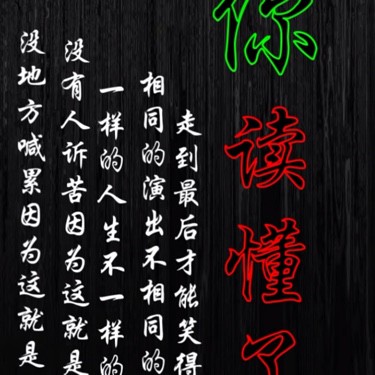 你读懂了
走到最后才能笑得
相同的演出不相同的
一样的人生不一样的
没有人诉苦因为这就是
没地方喊累因为这就是